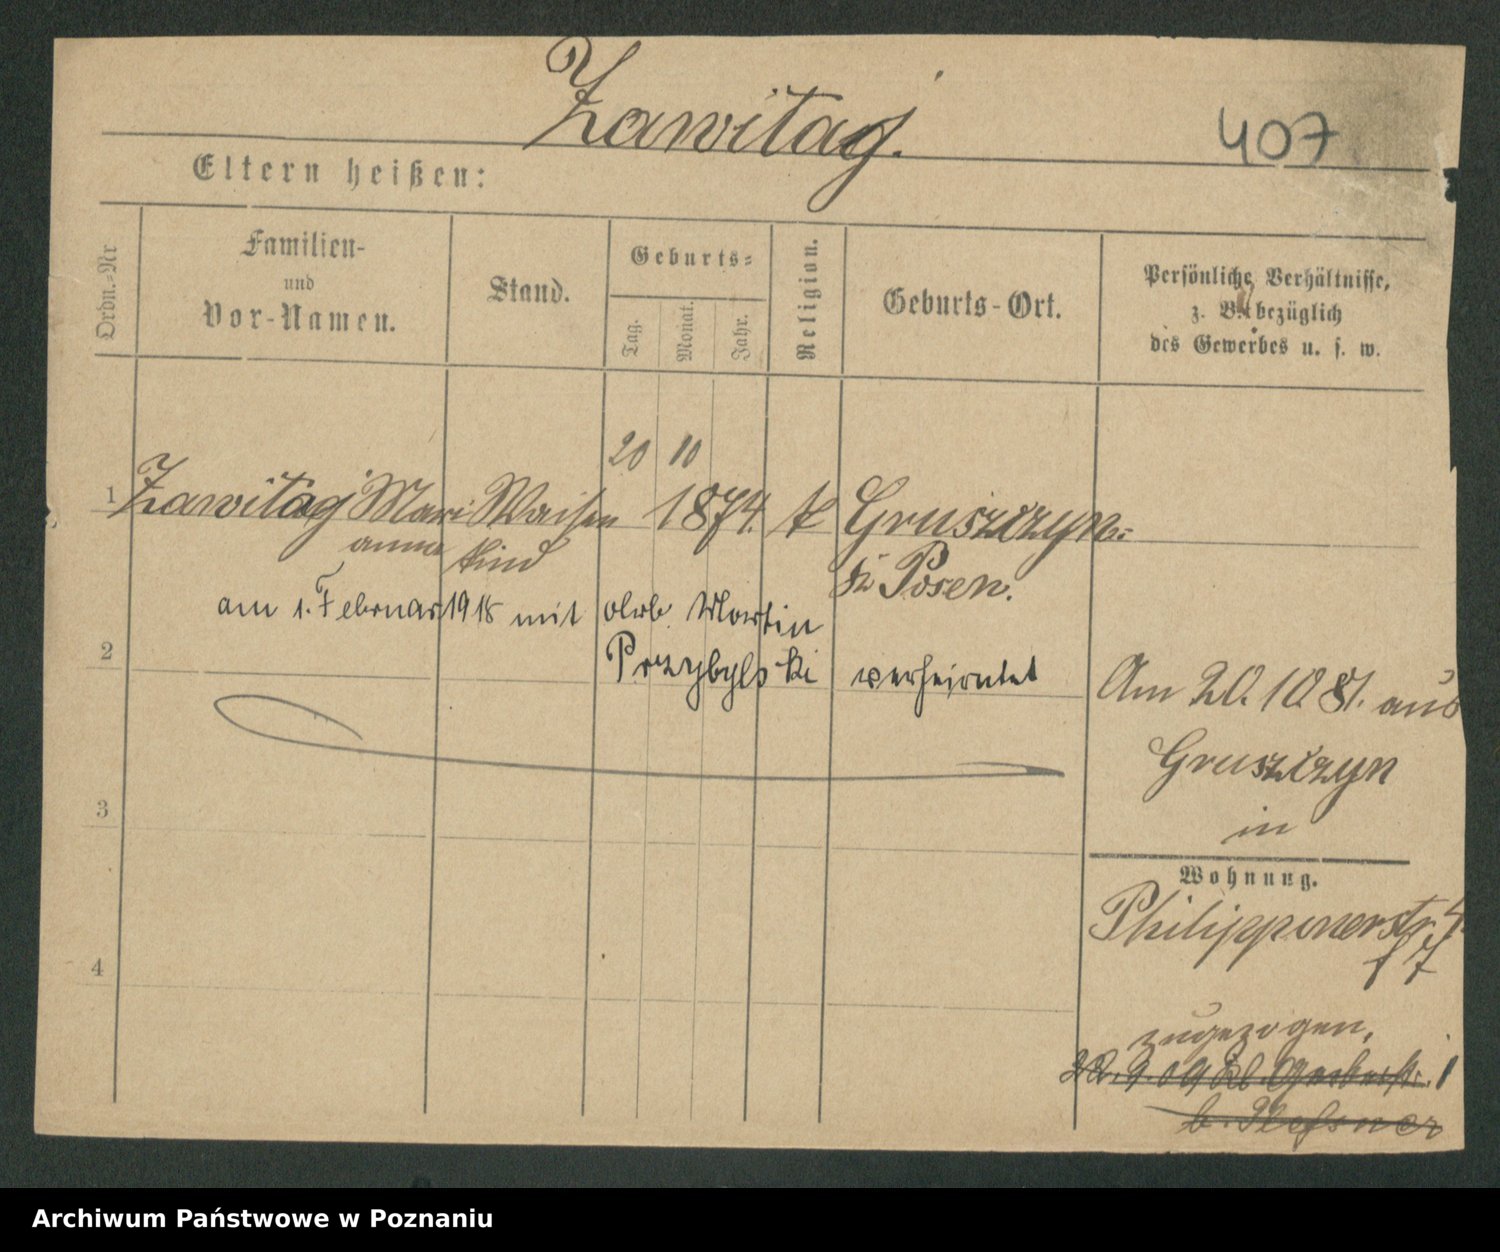 Zawitaj.
407
Eltern heißen:
Ordn.-Nr
Familien-
und
Vor-Namen.
Stand.
Geburts-
Tag.
Monat.
Jahr.
Religion.
Geburts-Ort.
Persönliche Verhältnisse,
z. B. bezüglich
des Gewerbes u. s. w.
20 10
1 Zawitaj Mari Waisen 1874. k Gruszczyn.
anna kind
Kr. Posen.
am 1. Februar 1918 mit Arb. Martin
2 Przybylski verheiratet
Am 20.10 81. aus
Gruszczyn
in
3
Wohnung.
Philipponerstr. 4.
f 7
4
zugezogen,
22.9.09 Gerberstr. 1
b.
Archiwum Państwowe w Poznaniu